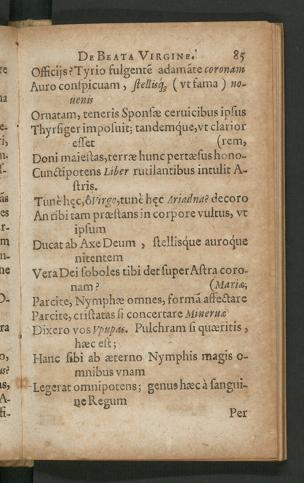 DE BEATA VIRGINE. 85
Officijs? Tyrio fulgentē adamāte coronam
Auro conspicuam, stellisq́; (vt fama) no-
uenis
Ornatam, teneris Sponsæ ceruicibus ipsus
Thyrsiger imposuit; tandemque, vt clarior
esset (rem,
Doni maiestas, terræ hunc pertæsus hono-
Cunctipotens Liber rutilantibus intulit A-
stris.
Tunè hęc, ô Virgo, tunè hęc Ariadna? decoro
An tibi tam præstans in corpore vultus, vt
ipsum
Ducat ab Axe Deum, stellisque auroque
nitentem
Vera Dei soboles tibi det super Astra coro-
nam? (Mariæ,
Parcite, Nymphæ omnes, formā affectare
Parcite, cristatas si concertare Mineruæ
Dixero vos Vpupas. Pulchram si quæritis,
hæc est;
Hanc sibi ab æterno Nymphis magis o-
mnibus vnam
Legerat omnipotens; genus hæc à sangui-
ne Regum
Per